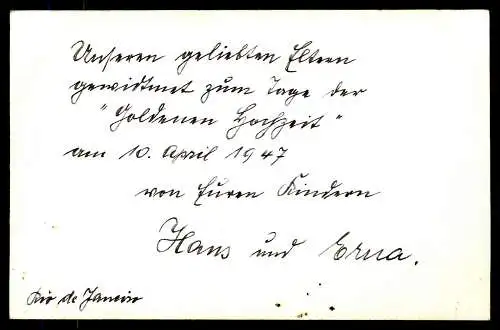 Unseren geliebten Eltern
gewidtmet zum Tage der
"Goldenen Hochzeit"
am 10. April 1947
von Euren Kindern
Hans und Erna.
Rio de Janeiro